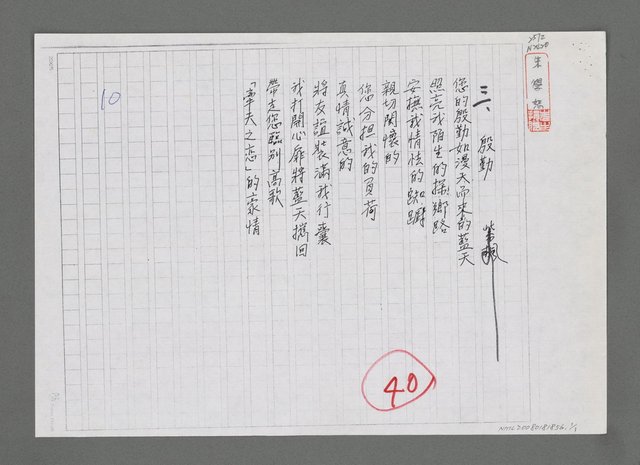 朱學恕
三、殷勤
紫楓
您的殷勤如漫天而來的藍天
照亮我陌生的探鄉路
安撫我情怯的踟躕
親切関懷的
您分担我的負荷
真情誠意的
將友誼裝滿我行囊
我打開心扉將藍天携回
帶走您臨別高歌
「車夫之恋」的豪情
10
40
NMTL20080181856. 1/1